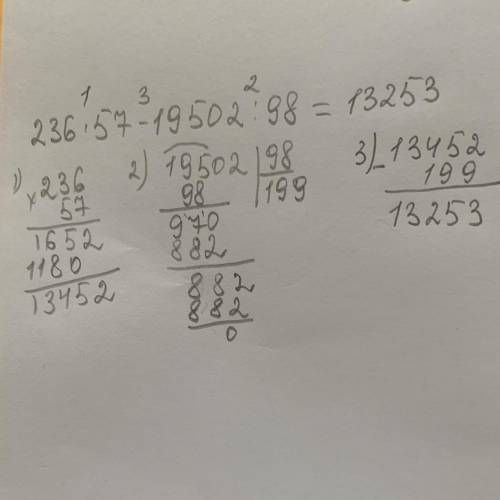 1 3 2
236·57-19502:98=13253
1)
×236
57
1652
1180
13452
2) 19502|98
98 199
970
882
882
882
0
3) -13452
199
13253